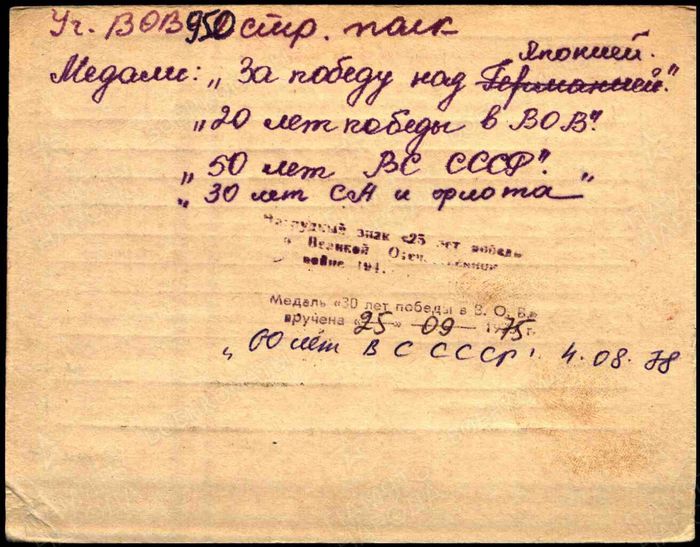 Уч. ВОВ 950 стр. полк
Японией.
Медали: „За победу над Германией."
„20 лет победы в ВОВ".
„50 лет ВС СССР".
„30 лет СА и флота"
Нагрудный знак «25 лет победы
в Великой Отечественной
войне 194
Медаль «30 лет победы в В. О. В.»
вручена «25» 09 1975 г.
„60 лет ВС СССР" 4.08.78